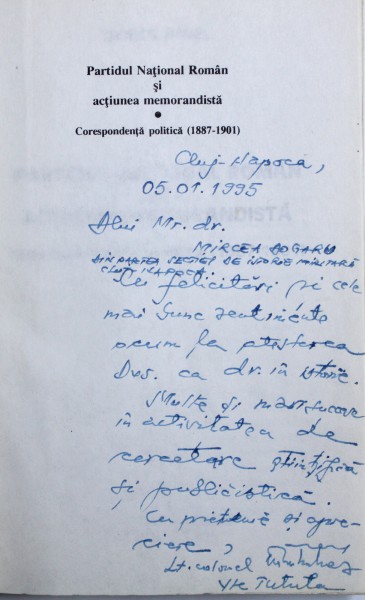 Partidul Național Român
și
acțiunea memorandistă
•
Corespondență politică (1887-1901)
Cluj-Napoca,
05.01.1995
Dlui Mr. dr.
MIRCEA DOGARU
DIN PARTEA SECȚIEI DE ISTORIE MILITARĂ
CLUJ-NAPOCA.
Cu felicitări și cele
mai bune sentimente
acum la atestarea
Dvs. ca dr. în istorie.
Multe și mari succese
în activitatea de
cercetare științifică
și publicistică.
Cu prietenie și apre-
ciere,
Lt. colonel